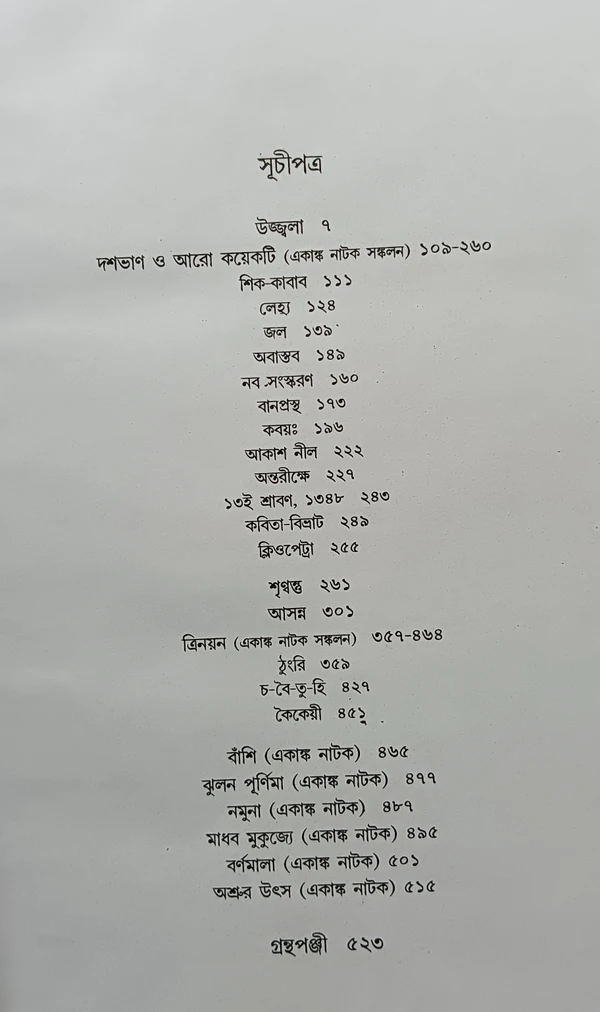 সূচীপত্র
উজ্জ্বলা ৭
দশভাণ ও আরো কয়েকটি (একাঙ্ক নাটক সঙ্কলন) ১০৯-২৬০
শিক-কাবাব ১১১
লেহ্য ১২৪
জল ১৩৯
অবাস্তব ১৪৯
নব সংস্করণ ১৬০
বানপ্রস্থ ১৭৩
কবয়ঃ ১৯৬
আকাশ নীল ২২২
অন্তরীক্ষে ২২৭
১৩ই শ্রাবণ, ১৩৪৮ ২৪৩
কবিতা-বিভ্রাট ২৪৯
ক্লিওপেট্রা ২৫৫
শৃণ্বন্তু ২৬১
আসন্ন ৩০১
ত্রিনয়ন (একাঙ্ক নাটক সঙ্কলন) ৩৫৭-৪৬৪
ঠুংরি ৩৫৯
চ-বৈ-তু-হি ৪২৭
কৈকেয়ী ৪৫১
বাঁশি (একাঙ্ক নাটক) ৪৬৫
ঝুলন পূর্ণিমা (একাঙ্ক নাটক) ৪৭৭
নমুনা (একাঙ্ক নাটক) ৪৮৭
মাধব মুকুজ্যে (একাঙ্ক নাটক) ৪৯৫
বর্ণমালা (একাঙ্ক নাটক) ৫০১
অশ্রুর উৎস (একাঙ্ক নাটক) ৫১৫
গ্রন্থপঞ্জী ৫২৩